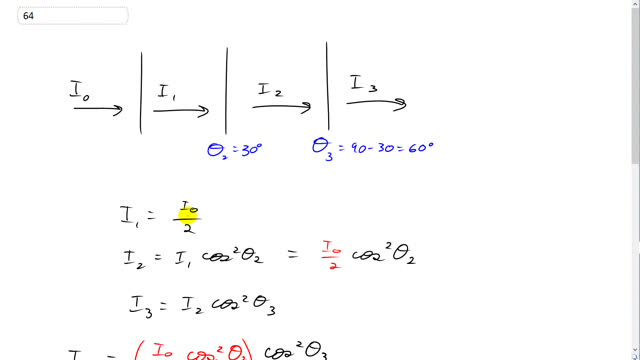 64
I₀ I₁ I₂ I₃
θ₂ = 30° θ₃ = 90 - 30 = 60°
I₁ = I₀/2
I₂ = I₁ cos²θ₂ = I₀/2 cos²θ₂
I₃ = I₂ cos²θ₃
I = (I₀ cos²θ₂) cos²θ₃